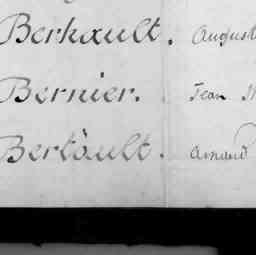 Berhault. August
Bernier. Jean
Bertault. Amand